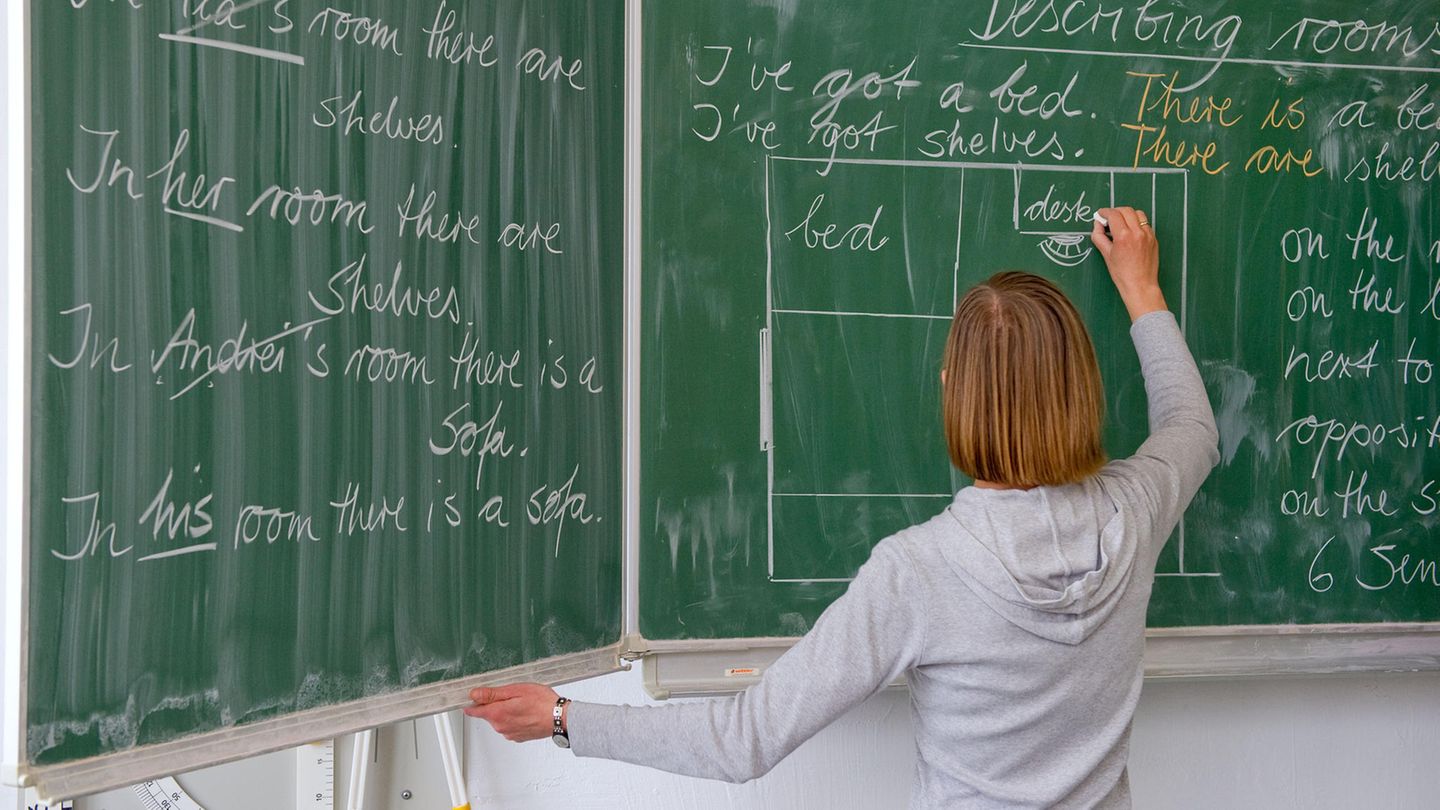 room there are
shelves.
In her room there are
shelves.
In Andrei's room there is a
sofa.
In his room there is a sofa.
Describing rooms
I've got a bed. There is a
I've got shelves. There are
bed
desk
on the
on the
next to
on the
6